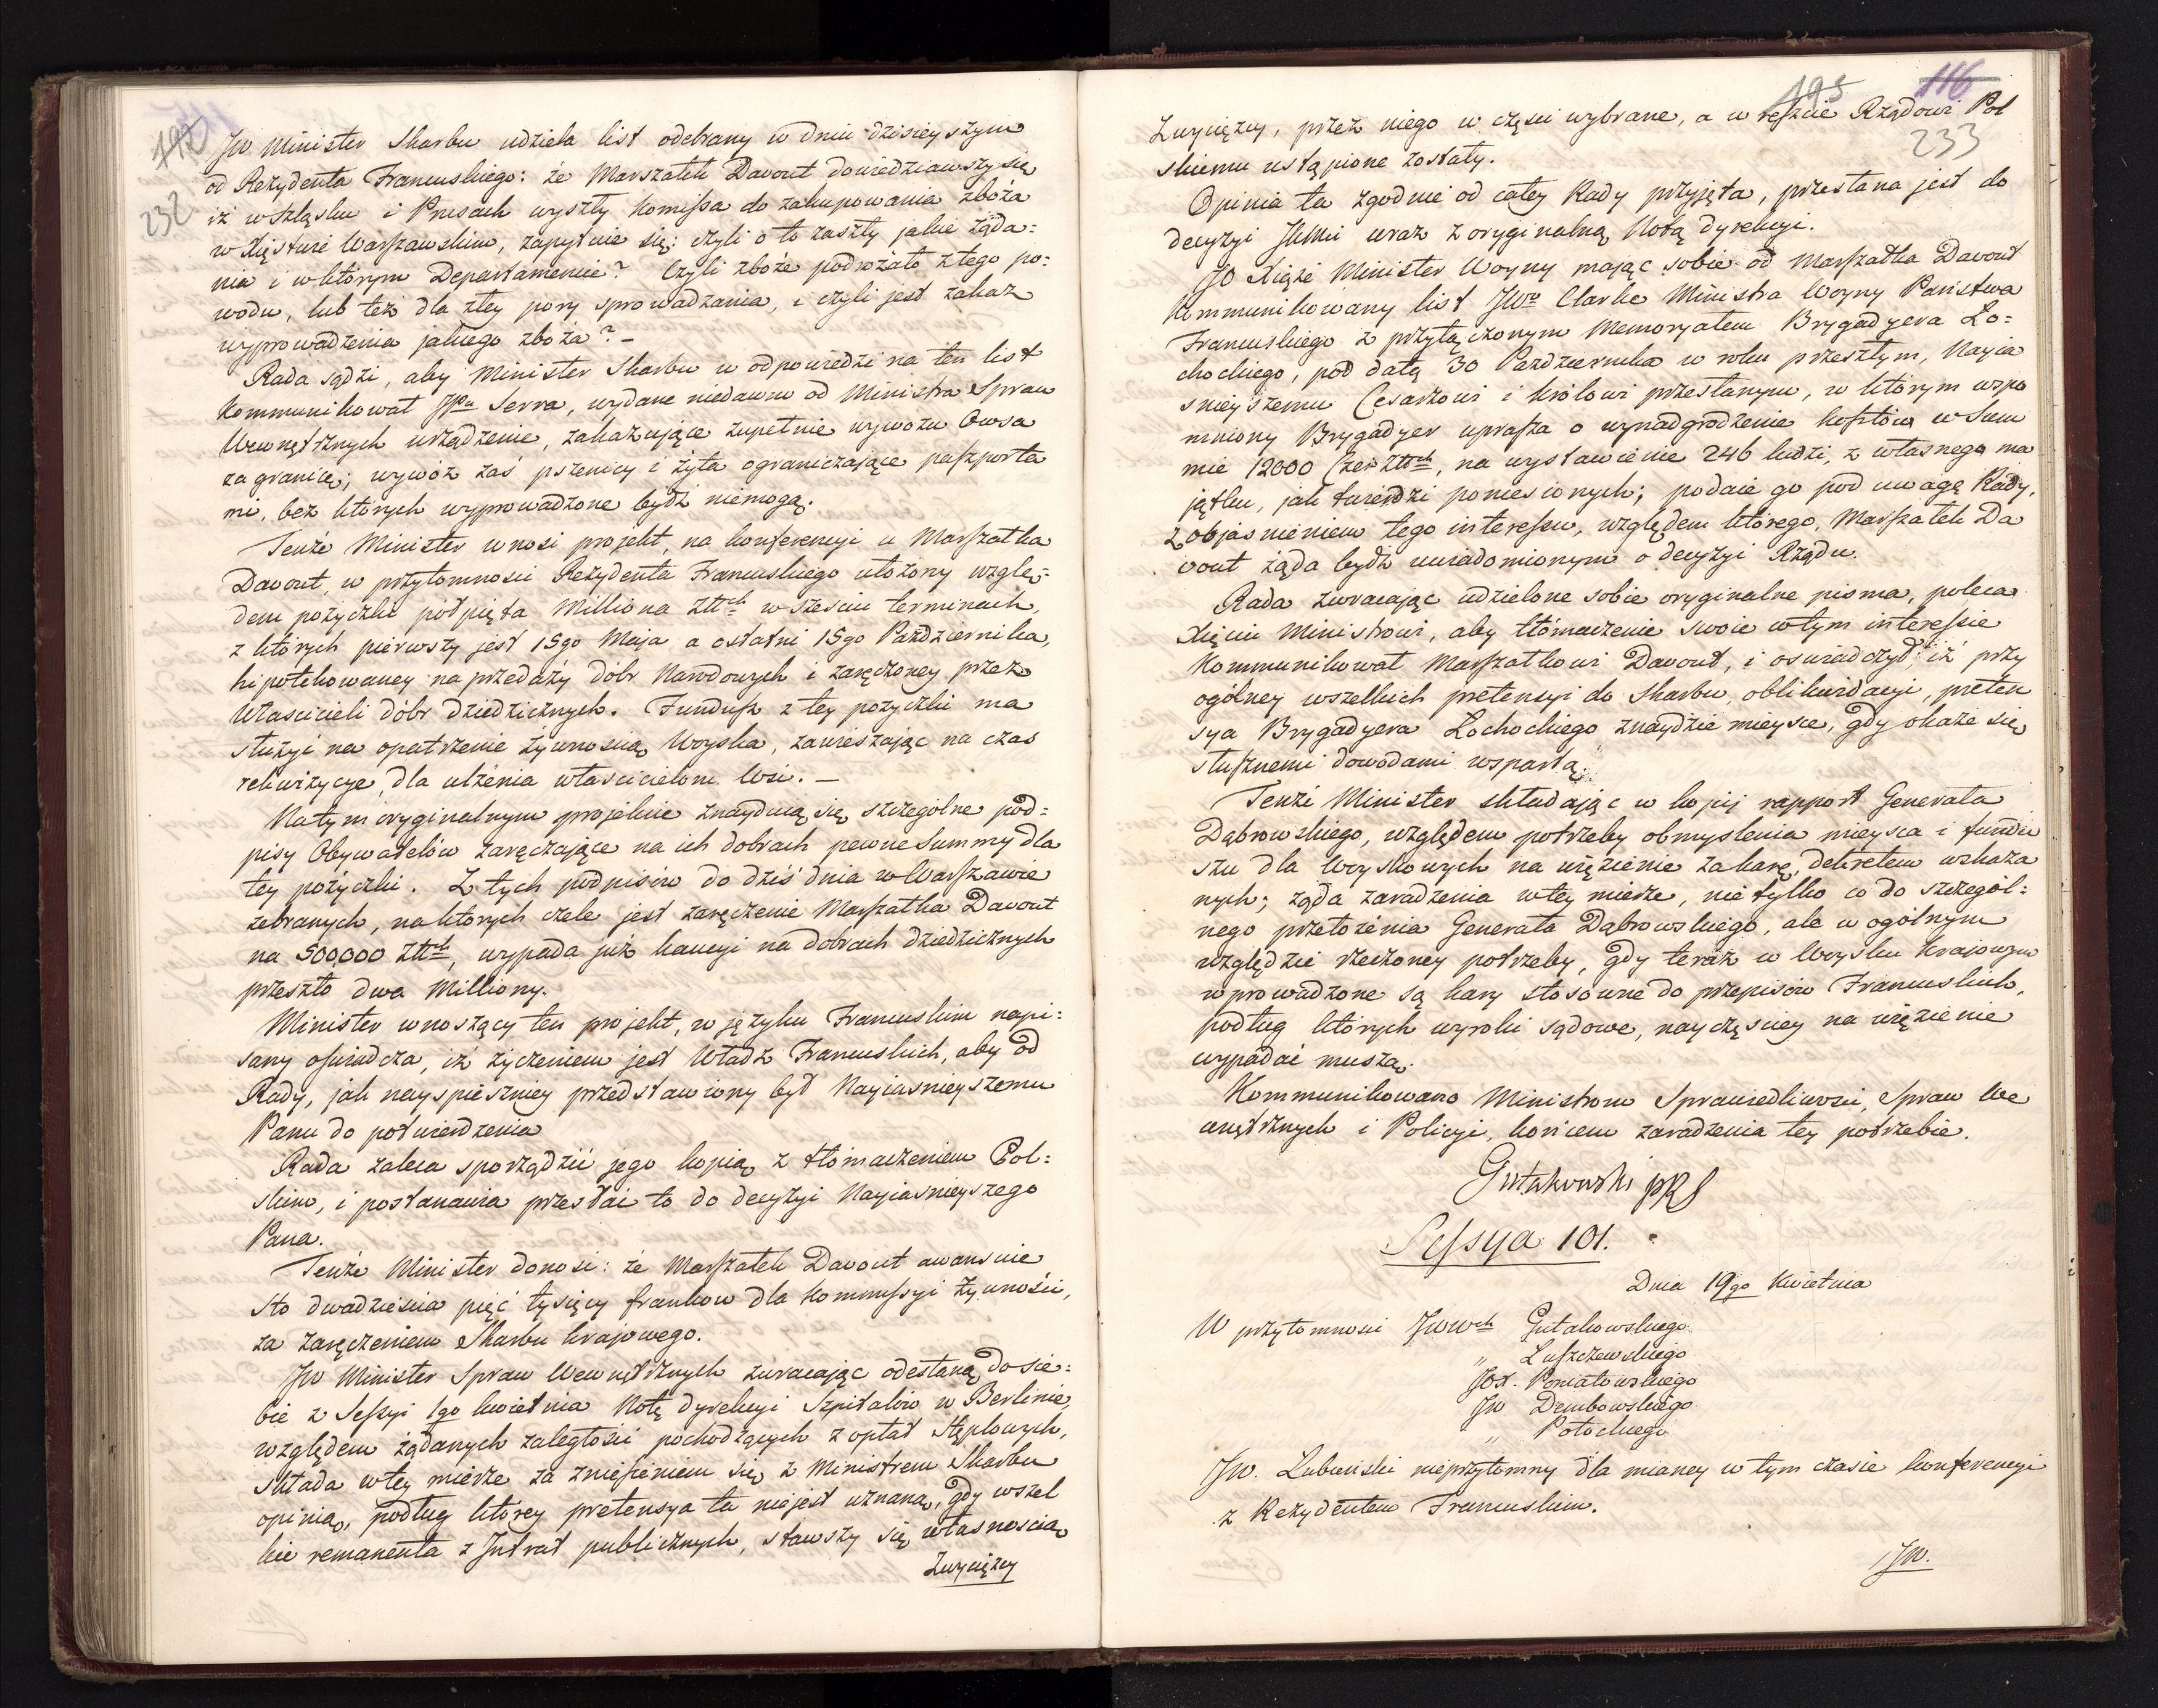 192
232
JW Minister Skarbu udziela list odebrany w dniu dzisieyszym
od Rezydenta Francuskiego: że Marszałek Davout dowiedziawszy się
iż w Szląsku i Prusach wyszły Komissa do zakupowania zboża
w Xięstwie Warszawskim, zapytuie się: czyli o to zaszły jakie żąda=
nia i w którym Departamencie? Czyli zboże podrożało z tego po=
wodu, lub też dla złey pory sprowadzania, i czyli jest zakaz
wyprowadzenia jakiego zboża? –
Rada sądzi, aby Minister Skarbu w odpowiedzi na ten list
kommunikował JPu Serra, wydane niedawno od Ministra Spraw
Wewnętrznych urządzenie, zakazuiące zupełnie wywozu Owsa
za granicę; wywóz zaś pszenicy i żyta ograniczaiące paszporta
mi, bez których wyprowadzone bydź niemogą.
Tenże Minister wnosi projekt, na konferencyi u Marszałka
Davout, w przytomności Rezydenta Francuskiego ułożony wzglę=
dem pożyczki półpięta Milliona Złłch w sześciu terminach,
z których pierwszy jest 15go Maja a ostatni 15go Października,
hipotekowaney na przedaży dóbr Narodowych i zaręczoney przez
Właścicieli dóbr dziedzicznych. Fundusz z tey pożyczki ma
służyć na opatrzenie żywnością Woyska, zawieszając na czas
rekwizycye, dla ulżenia właścicielom Wsi. –
Na tym oryginalnym projekcie znayduią się szczególne pod=
pisy Obywatelów zaręczaiące na ich dobrach pewne Summy dla
tey pożyczki. Z tych podpisów do dziś dnia w Warszawie
zebranych, na których czele jest zaręczenie Marszałka Davout
na 500,000 Złłch, wypada już kaucyi na dobrach dziedzicznych
przeszło dwa Milliony.
Minister wnoszący ten projekt, w języku Francuskim napi=
sany oświadcza, iż życzeniem jest Władz Francuskich, aby od
Rady, jak nayspieszniey przedstawiony był Nayiaśnieyszemu
Panu do potwierdzenia
Rada zaleca sporządzić jego kopią z tłómaczeniem Pol=
skim, i postanawia przesłać to do decyzyi Nayiaśnieyszego
Pana.
Tenże Minister donosi: że Marszałek Davout awansuie
sto dwadzieścia pięć tysięcy franków dla Kommissyi Żywności,
za zaręczeniem Skarbu krajowego.
JW Minister Spraw Wewnętrznych zwracając odesłaną do sie=
bie z Sessyi 1go kwietnia Notę dyrekcyi Szpitalów w Berlinie,
względem żądanych zaległości pochodzących z opłat stęplowych,
składa w tey mierze za zniesieniem się z Ministrem Skarbu
opinią, podług którey pretensya ta niejest uznaną, gdy wszel
kie remanenta z Intrat publicznych, stawszy się własnością
Zwycięzcy
195
116
233
Zwycięzcy, przez niego w części wybrane, a w reszcie Rządowi Pol
skiemu ustąpione zostały.
Opinia ta zgodnie od całey Rady przyjęta, przesłana jest do
decyzyi JKMci wraz z oryginalną Notą dyrekcyi.
JO Xiąże Minister Woyny mając sobie od Marszałka Davout
kommunikowany list JWo Clarke Ministra Woyny Państwa
Francuskiego z przyłączonym Memoryałem Brygadyera Ło=
chockiego, pod datą 30 Października w roku przeszłym, Nayia
śnieyszemu Cesarzowi i Królowi przesłanym, w którym wspo
mniony Brygadyer uprasza o wynadgrodzenie kosztów w Sum
mie 12000 Czer Złłch, na wystawienie 246 ludzi, z własnego ma
jątku, jak twierdzi poniesionych; podaie go pod uwagę Rady,
z objaśnieniem tego interessu, względem którego, Marszałek Da
vout żąda bydź uwiadomionym o decyzyi Rządu.
Rada zwracając udzielone sobie oryginalne pisma, poleca
Xięciu Ministrowi, aby tłómaczenie swoie w tym interessie
kommunikował Marszałkowi Davout, i oświadczył, iż przy
ogólney wszelkich pretensyi do Skarbu, oblikwidacyi, preten
sya Brygadyera Łochockiego znaydzie mieysce, gdy okaże się
słusznemi dowodami wspartą.
Tenże Minister składając w kopij rapport Generała
Dąbrowskiego, względem potrzeby obmyślenia mieysca i fundu
szu dla Woyskowych na więzienie za karę, dekretem wskaza
nych; żąda zaradzenia w tey mierze, nie tylko co do szczegól=
nego przełożenia Generała Dąbrowskiego, ale w ogólnym
względzie rzeczoney potrzeby, gdy teraz w Woysku Krajowym
wprowadzone są kary stosowne do przepisów Francuskich,
podług których wyroki sądowe, nayczęściey na więzienie
wypadać muszą.
Kommunikowano Ministrom Sprawiedliwości, Spraw We
wnętrznych i Policyi, końcem zaradzenia tey potrzebie.
Gutakowski pRS
Sessya 101.
Dnia 19go Kwietnia
W przytomności JWWch Gutakowskiego
„ Łuszczewskiego
JOX. Poniatowskiego
JW Dembowskiego
„ Potockiego
JW. Łubieński nieprzytomny dla mianey w tym czasie konferencyi
z Rezydentem Francuskim.
JW.